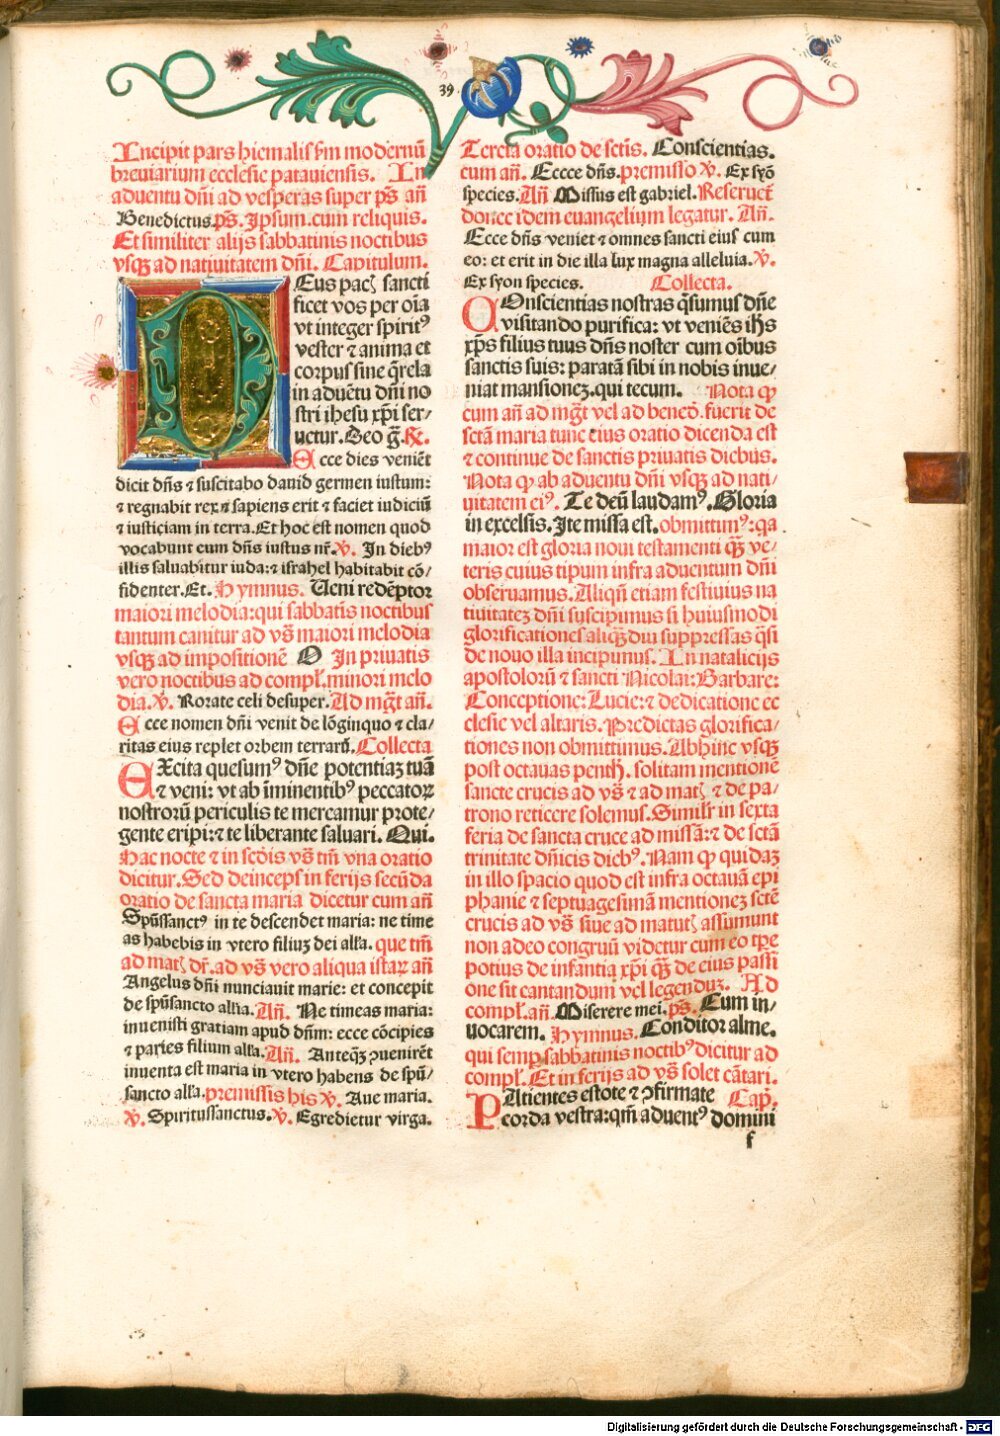 39.
Incipit pars hiemalis sm modernū
breuiarium ecclesie patauiensis. In
aduentu dn̄i ad vesperas super ps̄ an̄
Benedictus. ps̄. Ipsum. cum reliquis.
Et similiter alijs sabbatinis noctibus
vsqꝫ ad natiuitatem dn̄i. Capitulum.
DEus pacꝭ sancti
ficet vos per oīa
vt integer spirit⁹
vester ⁊ anima et
corpus sine q̄rela
in aduētu dn̄i no
stri ihesu xp̄i ser⸗
uetur. Deo g̃. R̄.
Ecce dies veniēt
dicit dn̄s ⁊ suscitabo dauid germen iustum:
⁊ regnabit rex ⁊ sapiens erit ⁊ faciet iudiciū
⁊ iusticiam in terra. Et hoc est nomen quod
vocabunt eum dn̄s iustus nr̄. V̄. In dieb⁹
illis saluabitur iuda: ⁊ israhel habitabit cō⸗
fidenter. Et. Hymnus. Ueni redēptor
maiori melodia: qui sabbatis noctibus
tantum canitur ad vs̄ maiori melodia
vsqꝫ ad impositionē O In priuatis
vero noctibus ad compł. minori melo
dia. V̄. Rorate celi desuper. Ad mgt̄ an̄.
Ecce nomen dn̄i venit de lōginquo ⁊ cla⸗
ritas eius replet orbem terrarū. Collecta
EXcita quesum⁹ dn̄e potentiaꝫ tuā
⁊ veni: vt ab īminentib⁹ peccatoꝝ
nostrorū periculis te mercamur prote⸗
gente eripi: ⁊ te liberante saluari. Qui.
Hac nocte ⁊ in scd̄is vs̄ tm̄ vna oratio
dicitur. Sed deinceps in ferijs secūda
oratio de sancta maria dicetur cum an̄
Sp̄ussanct⁹ in te descendet maria: ne time
as habebis in vtero filiuꝫ dei alła. que tm̄
ad matꝭ dr̄. ad vs̄ vero aliqua istaꝝ an̄
Angelus dn̄i nunciauit marie: et concepit
de sp̄usancto ałła. An̄. Ne timeas maria:
inuenisti gratiam apud dn̄m: ecce cōcipies
⁊ paries filium ałła. An̄. Anteqꝫ ꝯuenirēt
inuenta est maria in vtero habens de sp̄u⸗
sancto ałła. premissis his V̄. Aue maria.
V̄. Spiritussanctus. V̄. Egredietur virga.
Tercia oratio de sctīs. Conscientias.
cum an̄. Eccce dn̄s. premisso V̄. Ex syō
species. An̄ Missus est gabriel. Reseruet̄
donec idem euangelium legatur. An̄.
Ecce dn̄s veniet ⁊ omnes sancti eius cum
eo: et erit in die illa lux magna alleluia. V̄.
Ex syon species. Collecta.
COnscientias nostras q̄sumus dn̄e
visitando purifica: vt veniēs ihs̄
xp̄s filius tuus dn̄s noster cum oībus
sanctis suis: paratā sibi in nobis inue⸗
niat mansioneꝫ. qui tecum. Nota ꝙ
cum an̄ ad mgt̄ vel ad benec̄. fuerit de
sctā maria tunc eius oratio dicenda est
⁊ continue de sanctis priuatis diebus.
Nota ꝙ ab aduentu dn̄i vsqꝫ ad nati⸗
uitatem ei⁹. Te deū laudam⁹. Gloria
in excelsis. Ite missa est. obmittim⁹: qa
maior est gloria noui testamenti qꝫ ve⸗
teris cuius tipum infra aduentum dn̄i
obseruamus. Aliqn̄ etiam festiuius na
tiuitateꝫ dn̄i suscipimus si huiusmodi
glorificationes aliqꝫdiu suppressas q̄si
de nouo illa incipimus. In natalicijs
apostolorū ⁊ sancti Nicolai: Barbare:
Conceptione: Lucie: ⁊ dedicatione ec
clesie vel altaris. Predictas glorifica⸗
tiones non obmittimus. Abhinc vsqꝫ
post octauas penth. solitam mentionē
sancte crucis ad vs̄ ⁊ ad matꝭ ⁊ de pa⸗
trono reticere solemus. Similr̄ in sexta
feria de sancta cruce ad missā: ⁊ de sctā
trinitate dn̄icis dieb⁹. Nam ꝙ quidaꝫ
in illo spacio quod est infra octauā epi
phanie ⁊ septuagesimā mentioneꝫ sctē
crucis ad vs̄ siue ad matutꝭ assumunt
non adeo congruū videtur cum eo tꝑe
potius de infantia xp̄i qꝫ de eius passi
one sit cantandum vel legenduꝫ. Ad
compł. an̄. Miserere mei. ps̄. Cum in⸗
uocarem. Hymnus. Conditor alme.
qui semꝑ sabbatinis noctib⁹ dicitur ad
compł. Et in ferijs ad vs̄ solet cātari.
PAtientes estote ⁊ ꝯfirmate Cap̄.
corda vestra: qm̄ aduent⁹ domini
f
Digitalisierung gefördert durch die Deutsche Forschungsgemeinschaft - DFG